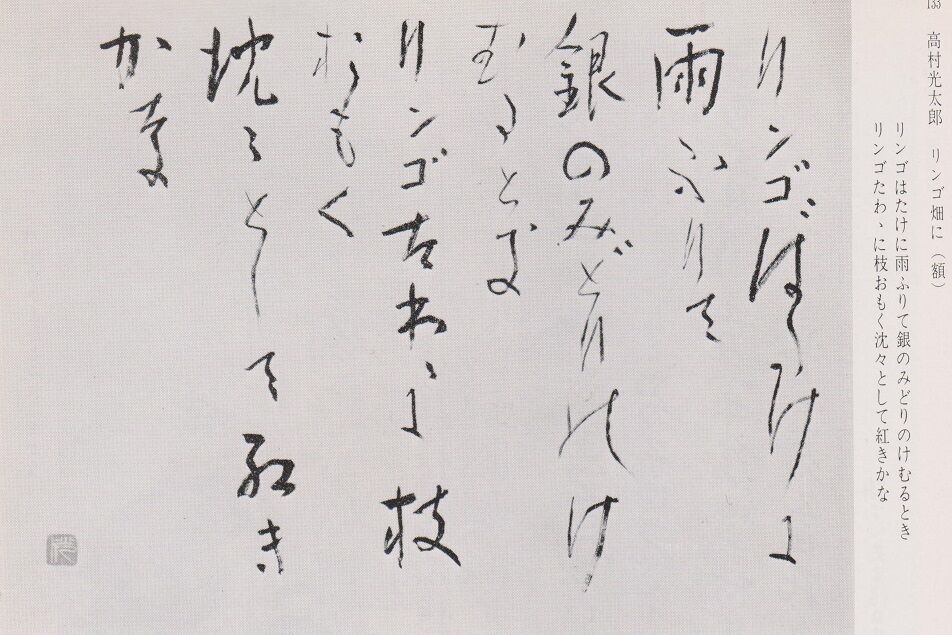 133　高村光太郎　リンゴ畑に（額）
リンゴはたけに雨ふりて銀のみどりのけむるとき
リンゴたわゝに枝おもく沈々として紅きかな
リンゴばたけに
雨ふりて
銀のみどりのけ
むるとき
リンゴたわゝに枝
おもく
沈々として紅き
かな